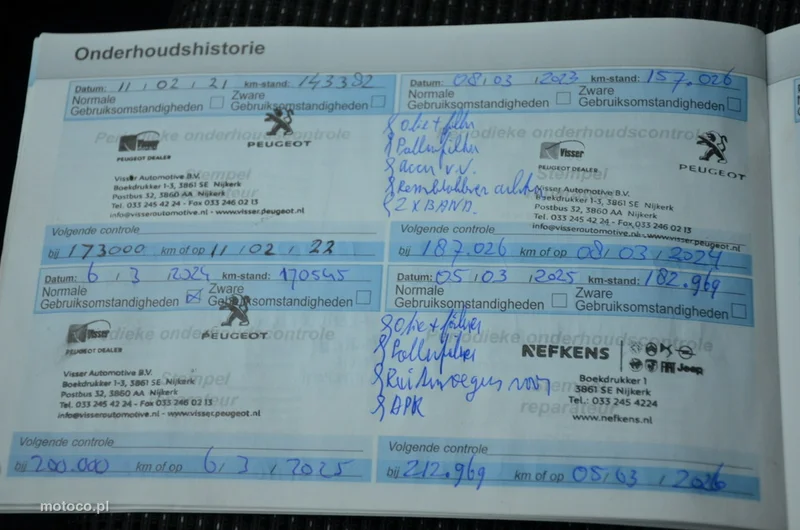 Onderhoudshistorie
Datum: 11 / 02 / 21 km-stand: 143382
Normale Gebruiksomstandigheden
Zware Gebruiksomstandigheden
Periodieke onderhoudscontrole
Visser
PEUGEOT DEALER
PEUGEOT
Stempel
Visser Automotive B.V.
Boekdrukker 1-3, 3861 SE Nijkerk
Postbus 32, 3860 AA Nijkerk
Tel. 033 245 42 24 - Fax 033 246 02 13
info@visserautomotive.nl - www.visser.peugeot.nl
Volgende controle
bij 173000 km of op 11 / 02 / 22
Datum: 08 / 03 / 2023 km-stand: 157.026
Normale Gebruiksomstandigheden
Zware Gebruiksomstandigheden
Periodieke onderhoudscontrole
Olie + filter
Pollenfilter
accu v.v.
Remblokken achter
2 x BAND.
Visser
PEUGEOT DEALER
PEUGEOT
Stempel
Visser Automotive B.V.
Boekdrukker 1-3, 3861 SE Nijkerk
Postbus 32, 3860 AA Nijkerk
Tel. 033 245 42 24 - Fax 033 246 02 13
info@visserautomotive.nl - www.visser.peugeot.nl
Volgende controle
bij 187.026 km of op 08 / 03 / 2024
Datum: 6 / 3 / 2024 km-stand: 170545
Normale Gebruiksomstandigheden
Zware Gebruiksomstandigheden
Periodieke onderhoudscontrole
Visser
PEUGEOT DEALER
PEUGEOT
Stempel
Visser Automotive B.V.
Boekdrukker 1-3, 3861 SE Nijkerk
Postbus 32, 3860 AA Nijkerk
Tel. 033 245 42 24 - Fax 033 246 02 13
info@visserautomotive.nl - www.visser.peugeot.nl
Volgende controle
bij 200.000 km of op 6 / 3 / 2025
Datum: 05 / 03 / 2025 km-stand: 182.969
Normale Gebruiksomstandigheden
Zware Gebruiksomstandigheden
Periodieke onderhoudscontrole
Olie + filter
Pollenfilter
Ruitenwissers voor
APK
NEFKENS
Jeep
Stempel
reparateur
Boekdrukker 1
3861 SE Nijkerk
Tel.: 033 245 4224
www.nefkens.nl
Volgende controle
bij 212.969 km of op 05 / 03 / 2026
motoco.pl